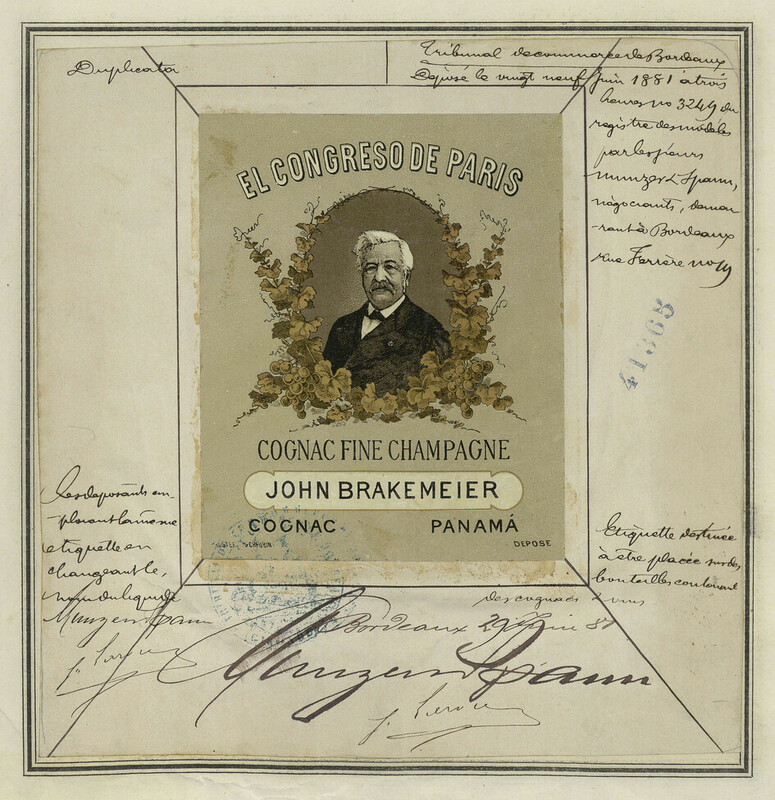 Duplicata
Tribunal de commerce de Bordeaux
Déposé le vingt neuf juin 1881 à trois
heures no 3249 du
registre des modèles
par les sieurs
Munzer & Spann,
négociants, demeu
rant à Bordeaux
rue Ferrère no 19
41365
EL CONGRESO DE PARIS
COGNAC FINE CHAMPAGNE
JOHN BRAKEMEIER
COGNAC PANAMÁ
DEPOSE
Les déposants em-
ploient la même
etiquette en
changeant le
nom du liquide
Munzer & Spann
Etiquette destinée
à être placée sur des
bouteilles contenant
des cognacs
Bordeaux 29 Juin 81
Munzer & Spann